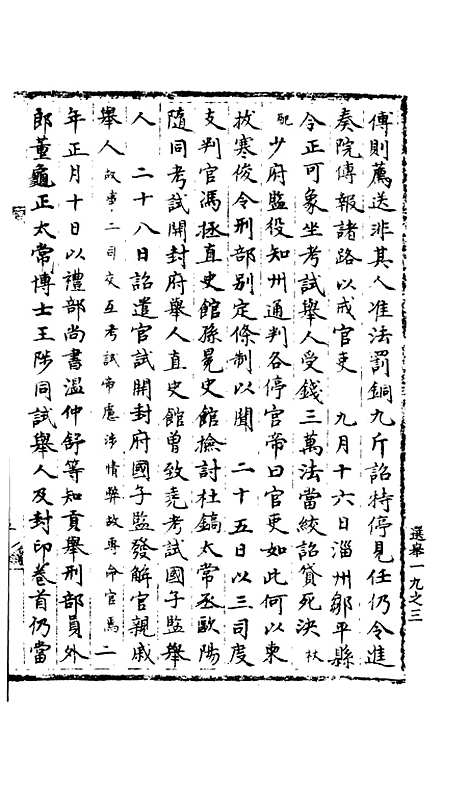 傳則薦送非其人准法罰銅九斤詔特停見任仍令進
奏院傳報諸路以戒官吏　九月十六日淄州鄒平縣
令正可象坐考試舉人受錢三萬法當絞詔貸死決杖
配少府監役知州通判各停官帝曰官吏如此何以柬
拔寒俊令刑部別定條制以聞　二十五日以三司度
支判官馮拯直史館孫冕史館檢討杜鎬太常丞歐陽
隨同考試開封府舉人直史館曾致堯考試國子監舉
人　二十八日詔遣官試開封府國子監發解官親戚
舉人故事二司交互考試帝應涉情弊故專命官焉　二
年正月十日以禮部尚書溫仲舒等知貢舉刑部員外
郎董龜正太常博士王陟同試舉人及封印卷首仍當
選舉一九之三